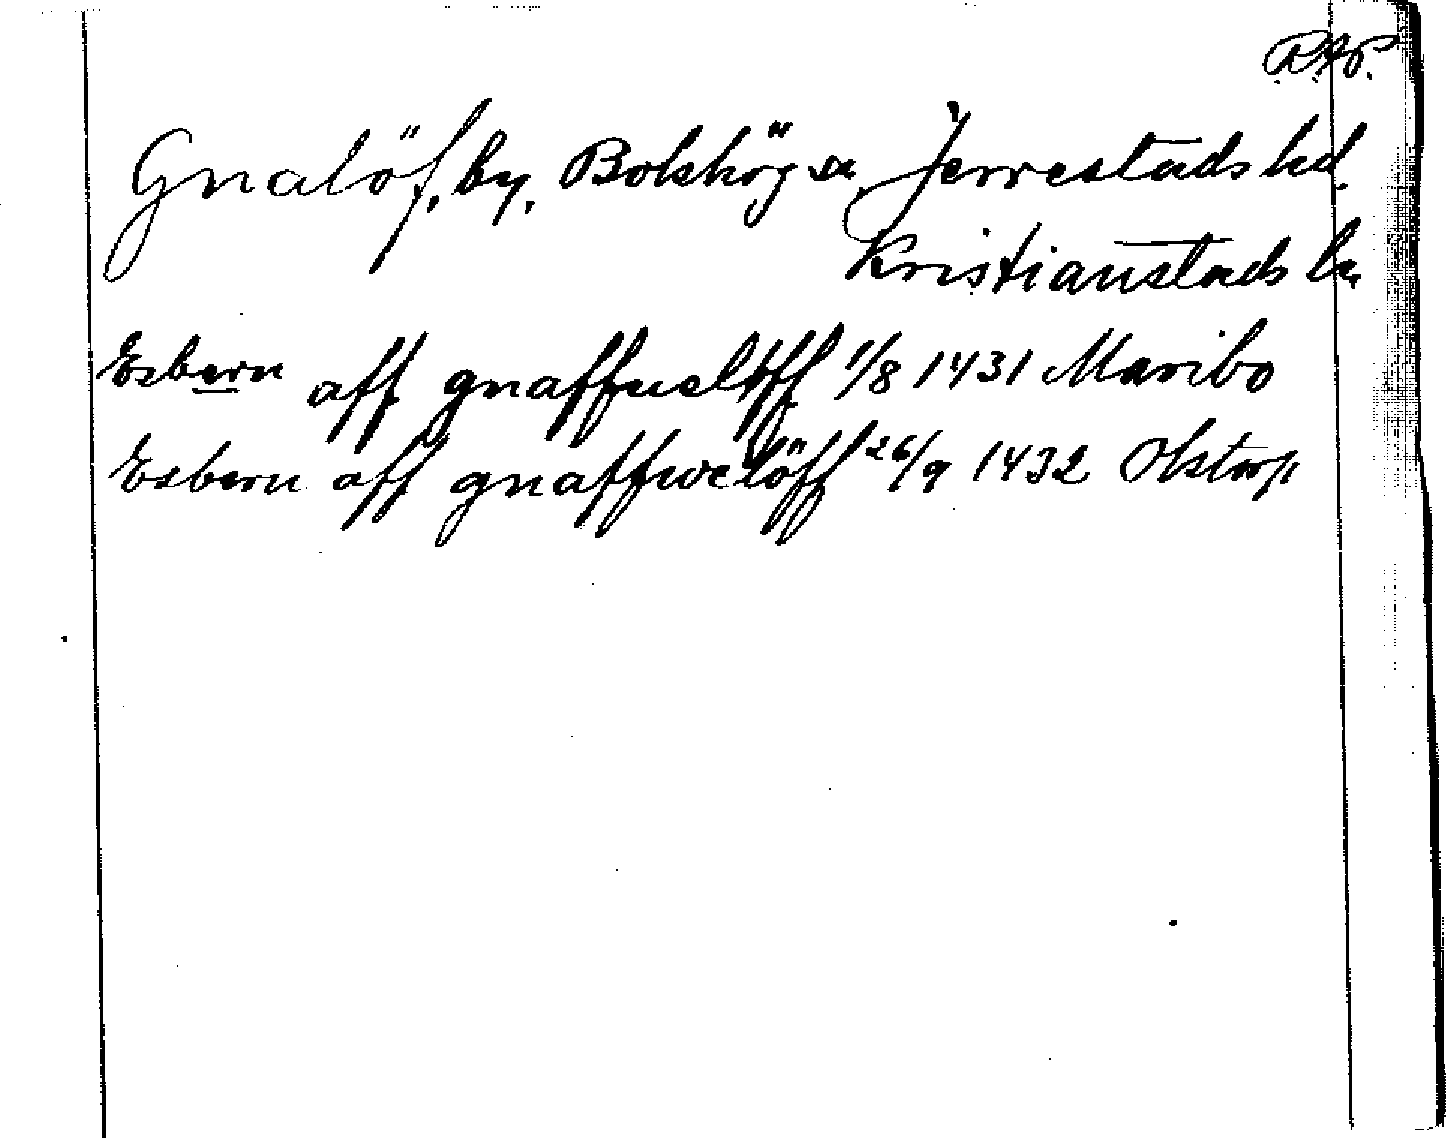 R.A.P.
Gnalöf, by, Bolshög sn, Jerrestads hd.
Kristianstads ln.
Esbern aff gnaffuelöff 1/8 1431 Maribo
Esbern aff gnaffwelöff 26/9 1432 Okstorp